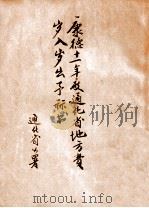 康德十一年度通化省地方費
岁入岁出予祘書
通化省公署